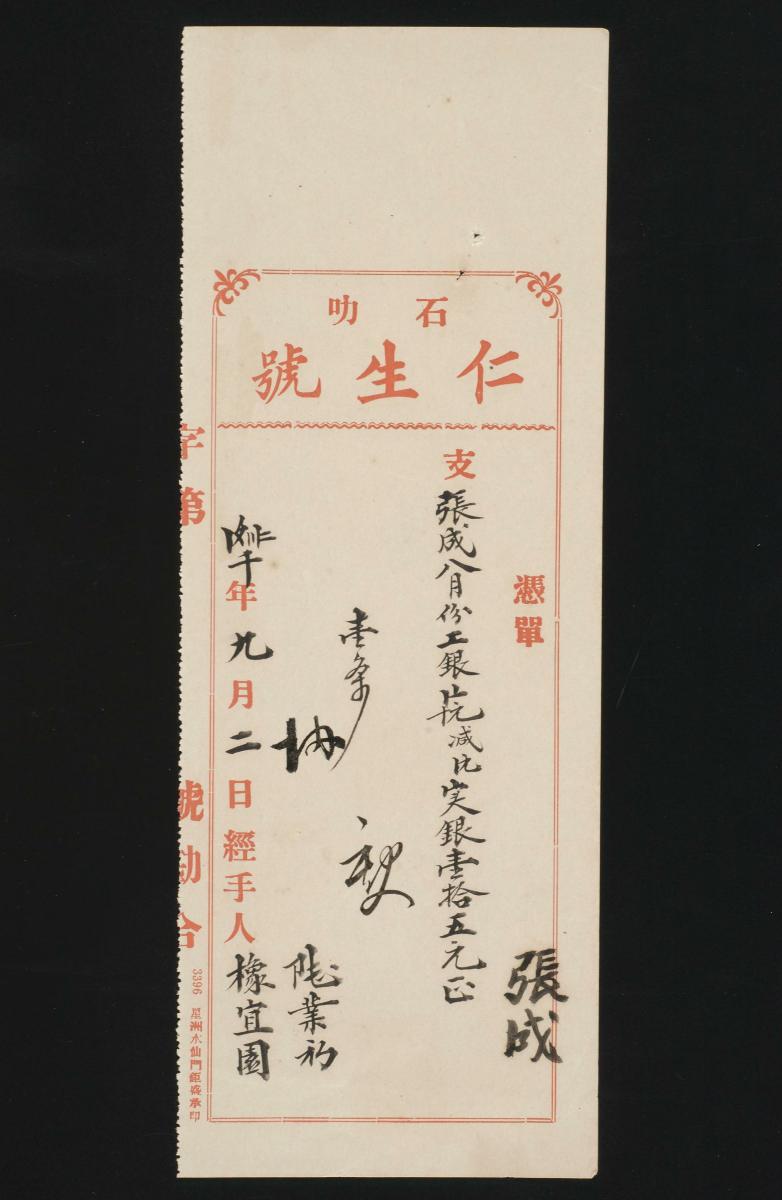 石叻
仁生號
憑單
張成
支張成八月份工銀減比实銀壹拾五元正
壹条
年九月二日經手人橡宜園
字第號勘合
3396 星洲水仙門鉅盛承印